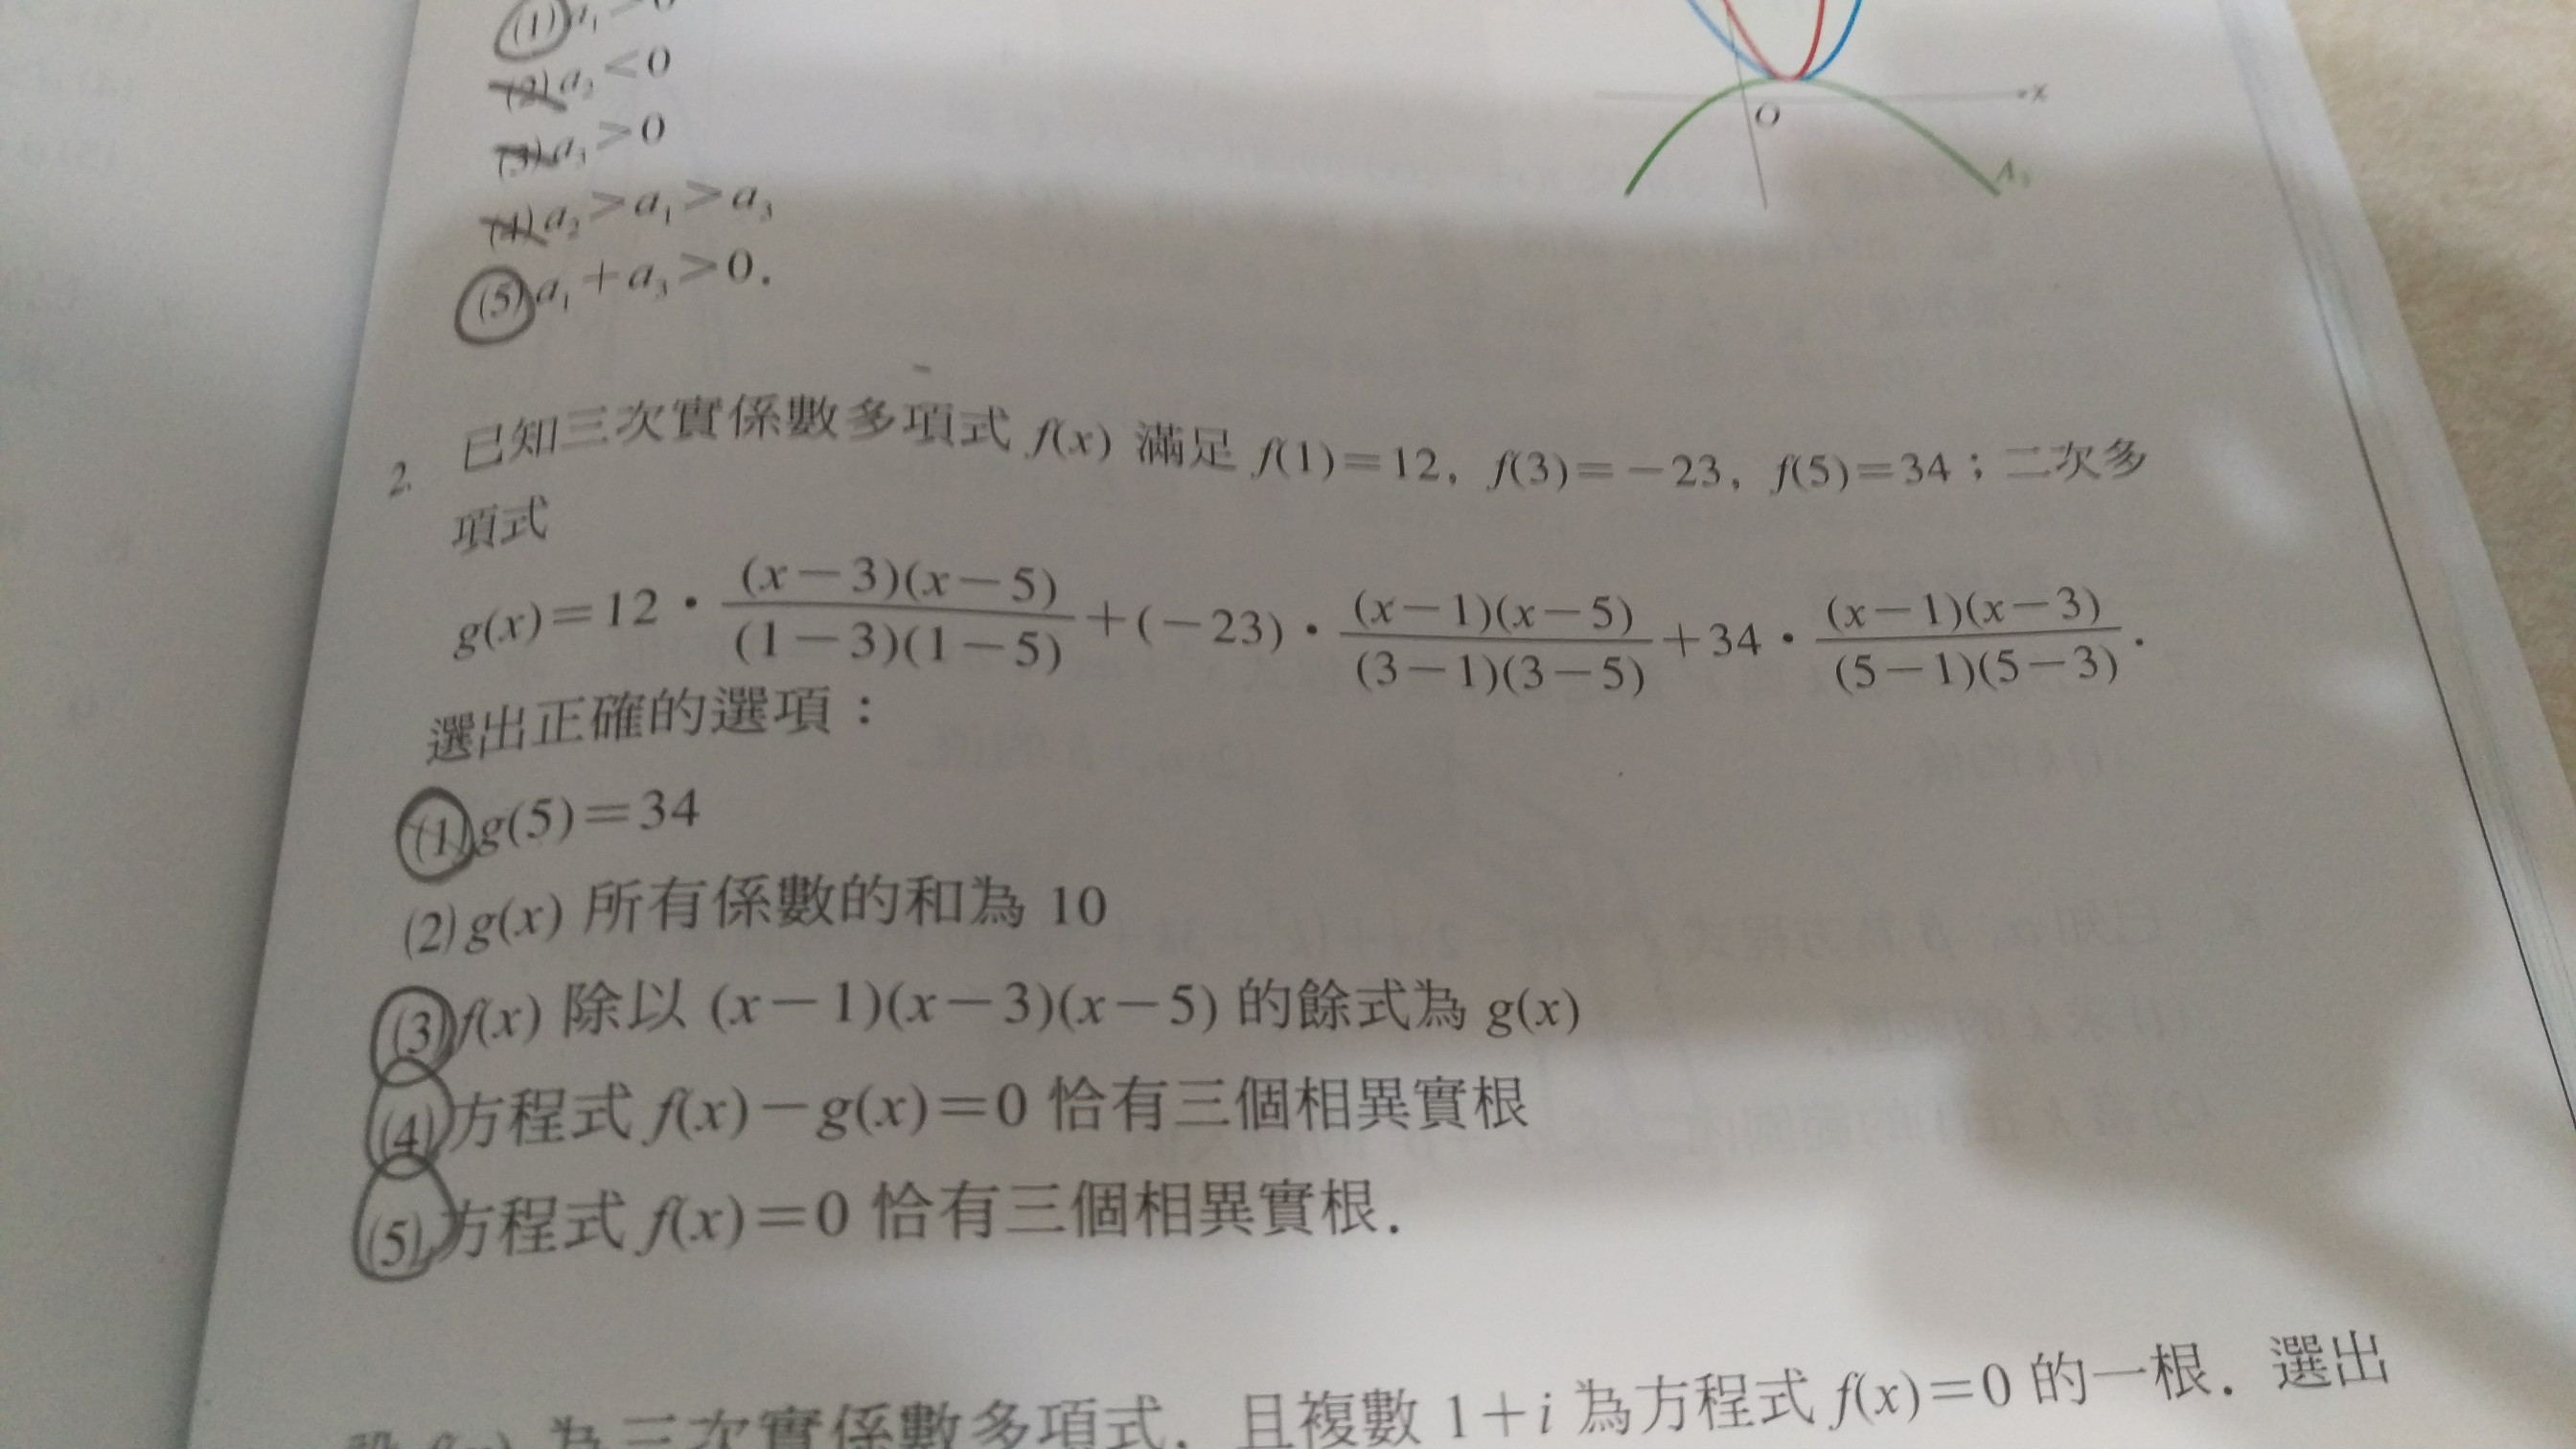 (1) a₁>0
(2) a₂<0
(3) a₃>0
(4) a₂>a₁>a₃
(5) a₁+a₃>0.
x
O
A₃
2. 已知三次實係數多項式 f(x) 滿足 f(1)=12, f(3)=-23, f(5)=34；二次多
項式
g(x)=12·(x-3)(x-5)/(1-3)(1-5)+(-23)·(x-1)(x-5)/(3-1)(3-5)+34·(x-1)(x-3)/(5-1)(5-3).
選出正確的選項：
(1) g(5)=34
(2) g(x) 所有係數的和為 10
(3) f(x) 除以 (x-1)(x-3)(x-5) 的餘式為 g(x)
(4) 方程式 f(x)-g(x)=0 恰有三個相異實根
(5) 方程式 f(x)=0 恰有三個相異實根.
為三次實係數多項式, 且複數 1+i 為方程式 f(x)=0 的一根. 選出